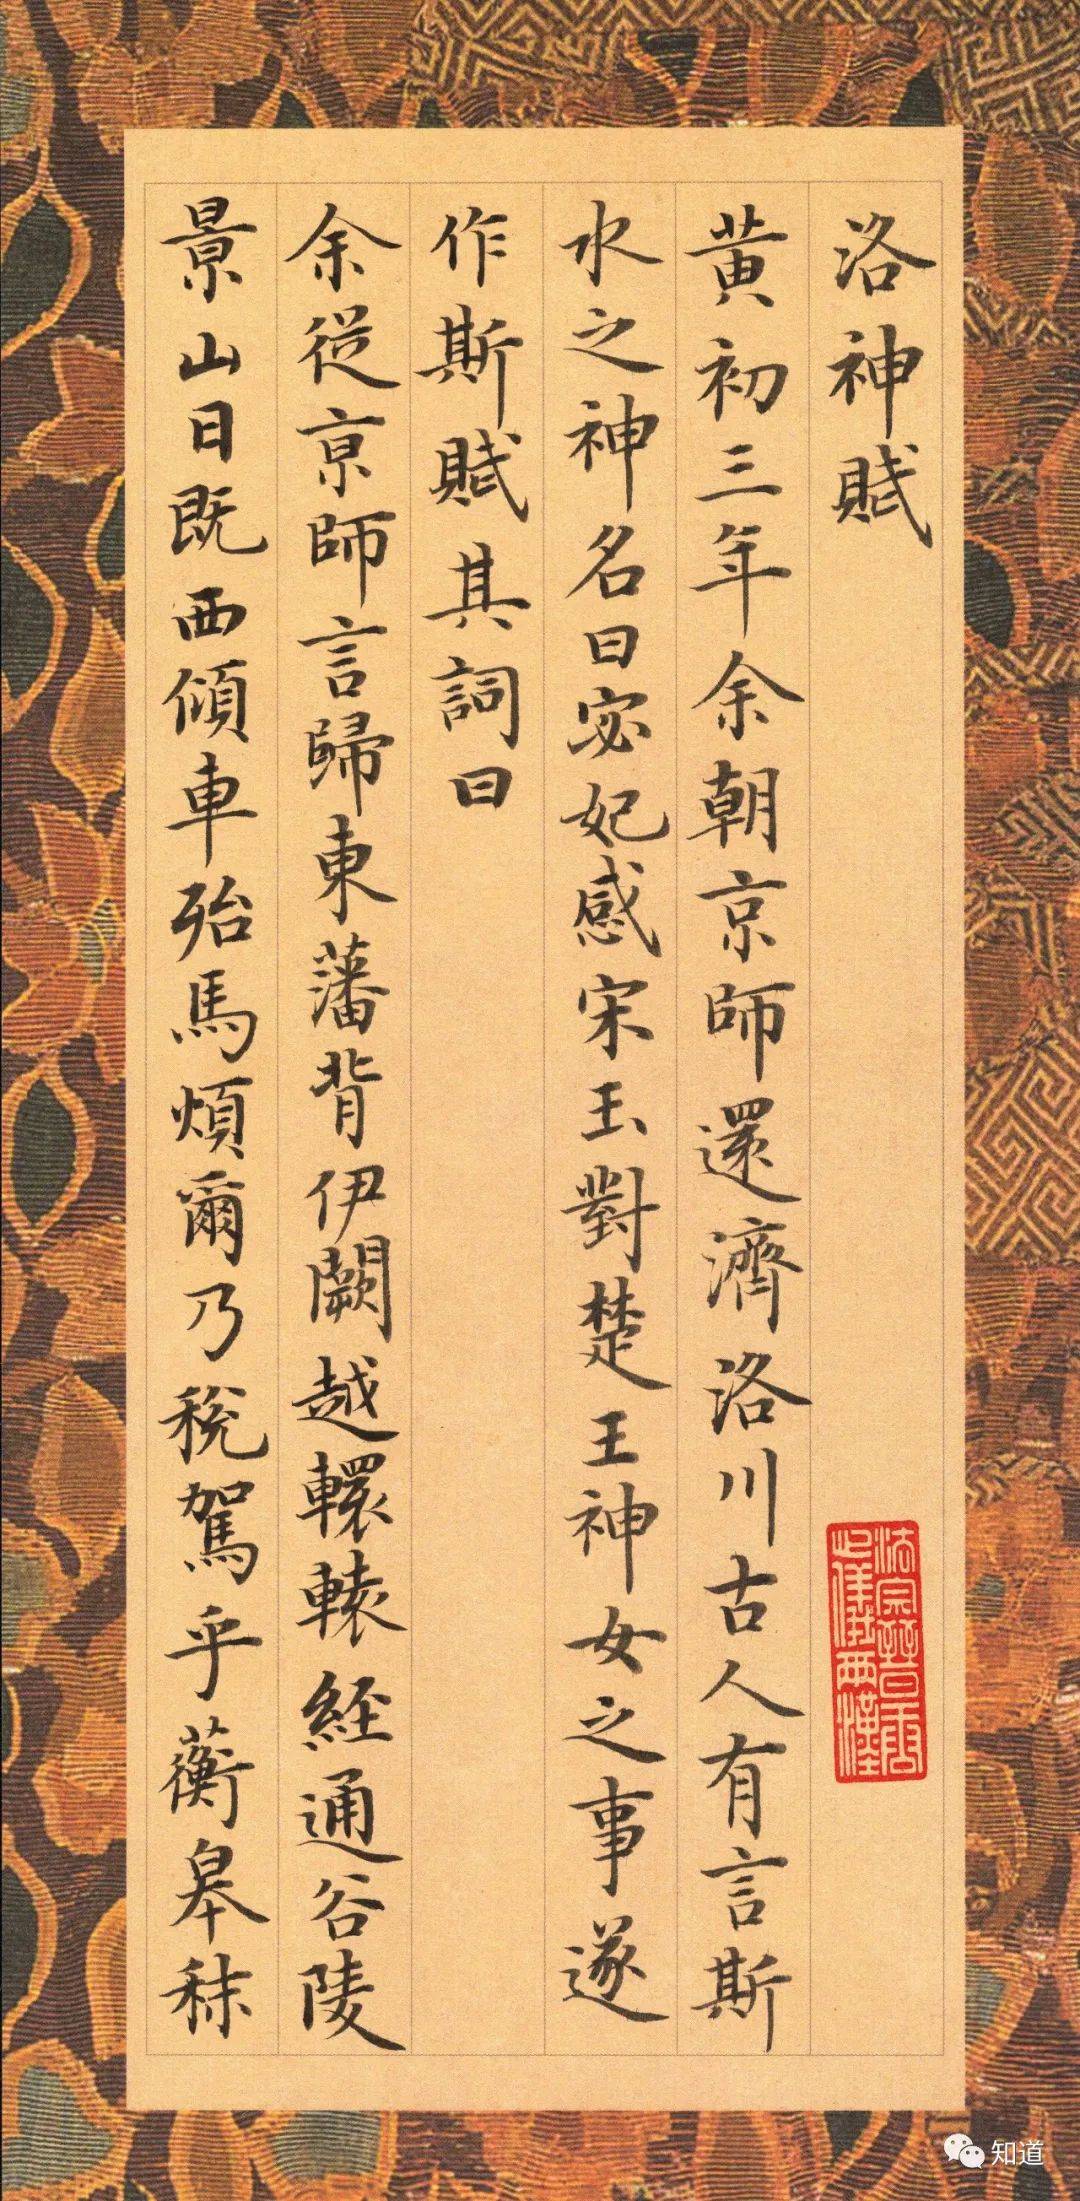 洛神賦
黄初三年余朝京師還濟洛川古人有言斯
水之神名曰宓妃感宋玉對楚王神女之事遂
作斯賦其詞曰
余從亰師言歸東藩背伊闕越轘轅經通谷陵
景山日既西傾車殆馬煩爾乃稅駕乎蘅皋秣
知道